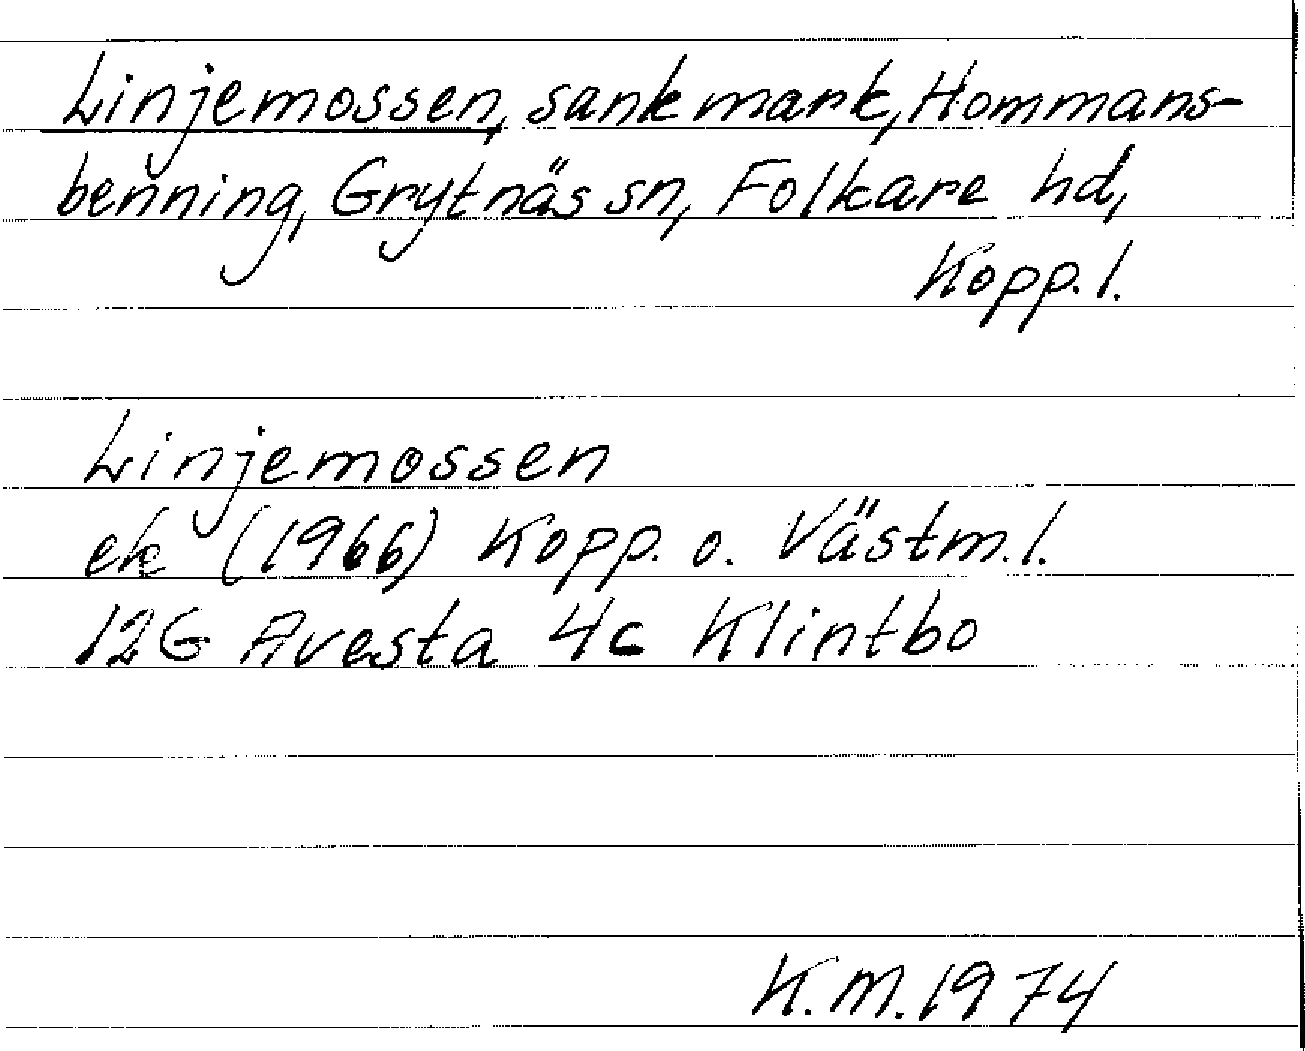 Linjemossen, sankmark, Hommans-
benning, Grytnäs sn, Folkare hd,
Kopp. l.
Linjemossen
ek (1966) Kopp. o. Västm. l.
12G Avesta 4c Klintbo
K.M. 1974